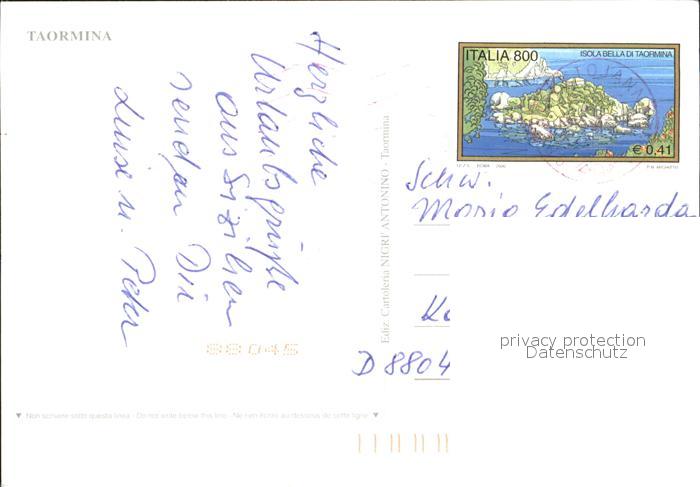 TAORMINA
Herzliche
Urlaubsgrüße
aus Sizilien
senden Dir
Luise u. Peter
88045
Ediz. Cartoleria NIGRI' ANTONINO - Taormina
ITALIA 800
ISOLA BELLA DI TAORMINA
€ 0,41
Schw.
Maria Edelharda
D 8804
privacy protection
Datenschutz
▼ Non scrivere sotto questa linea - Do not write below this line - Ne rien écrire au-dessous de cette ligne ▼